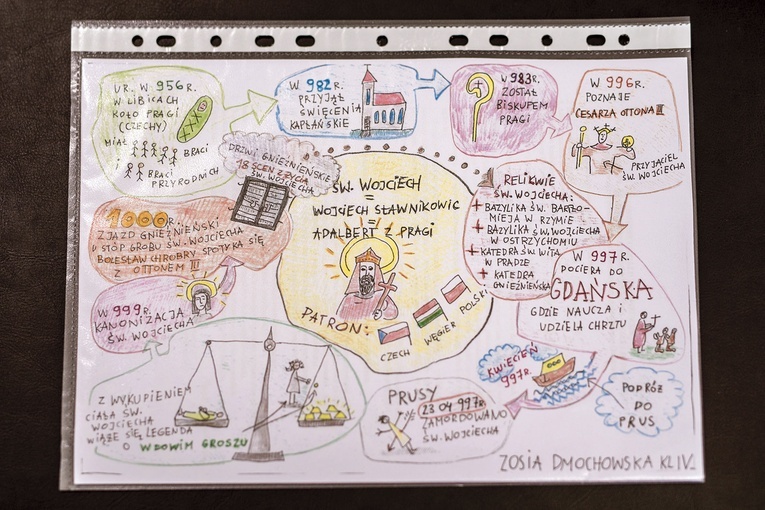 UR. W 956 R.
W LIBICACH
KOŁO PRAGI
(CZECHY)
MIAŁ
BRACI
BRACI
PRZYRODNICH
W 982 R.
PRZYJĄŁ
ŚWIĘCENIA
KAPŁAŃSKIE
W 983 R.
ZOSTAŁ
BISKUPEM
PRAGI
W 996 R.
POZNAJE
CESARZA OTTONA III
PRZYJACIEL
ŚW. WOJCIECHA
DRZWI GNIEŹNIEŃSKIE
18 SCEN Z ŻYCIA
ŚW. WOJCIECHA
ŚW. WOJCIECH
=
WOJCIECH SŁAWNIKOWIC
=
ADALBERT Z PRAGI
PATRON:
CZECH
WĘGIER
POLSKI
RELIKWIE
ŚW. WOJCIECHA:
+ BAZYLIKA ŚW. BARTŁO-
MIEJA W RZYMIE
+ BAZYLIKA ŚW. WOJCIECHA
W OSTRZYCHOMIU
+ KATEDRA ŚW. WITA
W PRADZE
+ KATEDRA
GNIEŹNIEŃSKA
W 997 R.
DOCIERA DO
GDAŃSKA
GDZIE NAUCZA I
UDZIELA CHRZTU
PODRÓŻ
DO
PRUS
KWIECIEŃ
997 R.
PRUSY
23 04 997 R.
ZAMORDOWANO
ŚW. WOJCIECHA
Z WYKUPIENIEM
CIAŁA ŚW.
WOJCIECHA
WIĄŻE SIĘ LEGENDA
O WDOWIM GROSZU
W 999 R.
KANONIZACJA
ŚW. WOJCIECHA
1000 R.
ZJAZD GNIEŹNIEŃSKI
U STÓP GROBU ŚW. WOJCIECHA
BOLESŁAW CHROBRY SPOTYKA SIĘ
Z OTTONEM III
ZOSIA DMOCHOWSKA KL IV